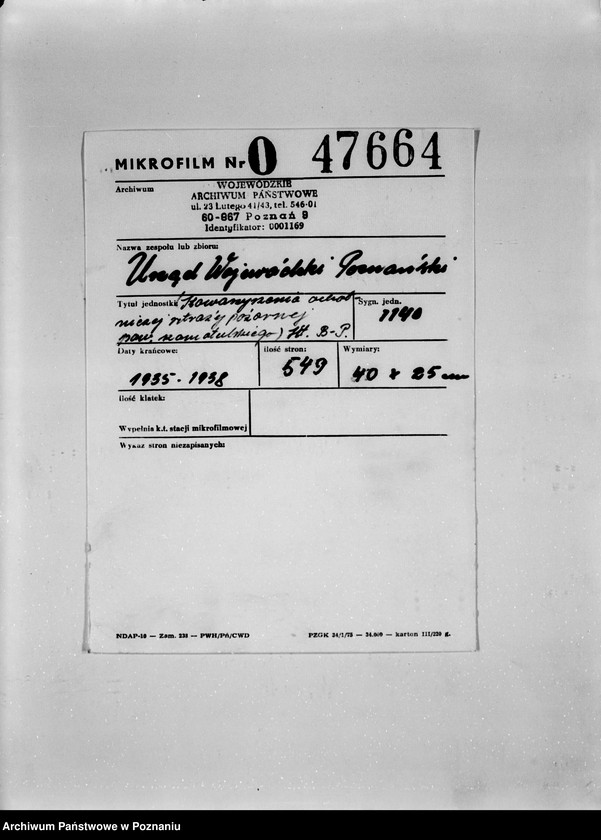 MIKROFILM Nr 0 47664
Archiwum
WOJEWÓDZKIE
ARCHIWUM PAŃSTWOWE
ul. 23 Lutego 41/43, tel. 546-01
60-967 Poznań 9
Identyfikator: 0001169
Nazwa zespołu lub zbioru:
Urząd Wojewódzki Poznański
Tytuł jednostki: Stowarzyszenia ochot
niczej straży pożarnej
pow. szamotulskiego) lit. B-P.
Sygn. jedn.
1140
Daty krańcowe:
1935-1938
ilość stron:
549
Wymiary:
40 x 25 cm
ilość klatek:
Wypełnia k.t. stacji mikrofilmowej
Wykaz stron niezapisanych:
NDAP-10 — Zam. 238 — PWH/Pń/CWD
PZGK 34/1/75 — 34.000 — karton III/220 g.
Archiwum Państwowe w Poznaniu